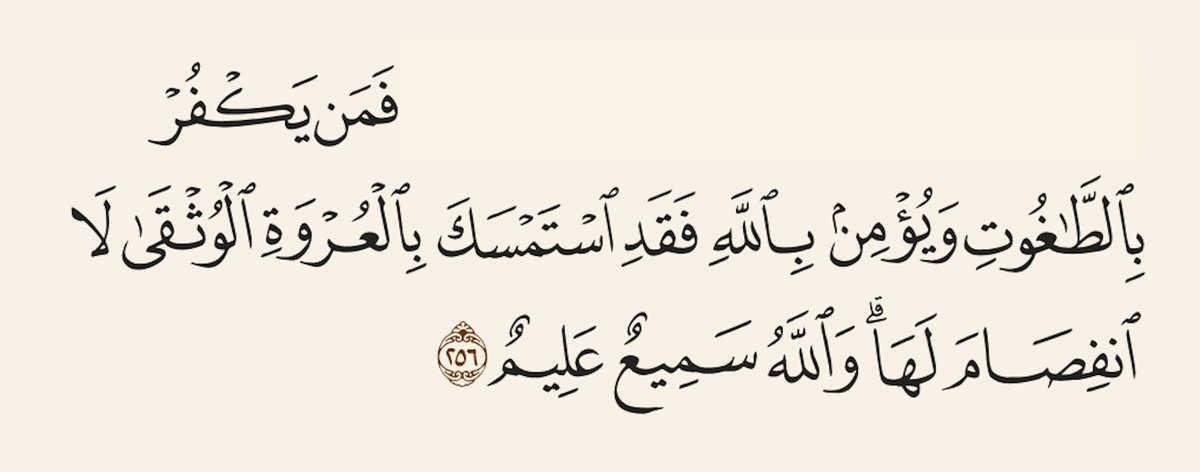 فَمَن يَكۡفُرۡ
بِٱلطَّٰغُوتِ وَيُؤۡمِنۢ بِٱللَّهِ فَقَدِ ٱسۡتَمۡسَكَ بِٱلۡعُرۡوَةِ ٱلۡوُثۡقَىٰ لَا
ٱنفِصَامَ لَهَاۗ وَٱللَّهُ سَمِيعٌ عَلِيمٌ ٢٥٦